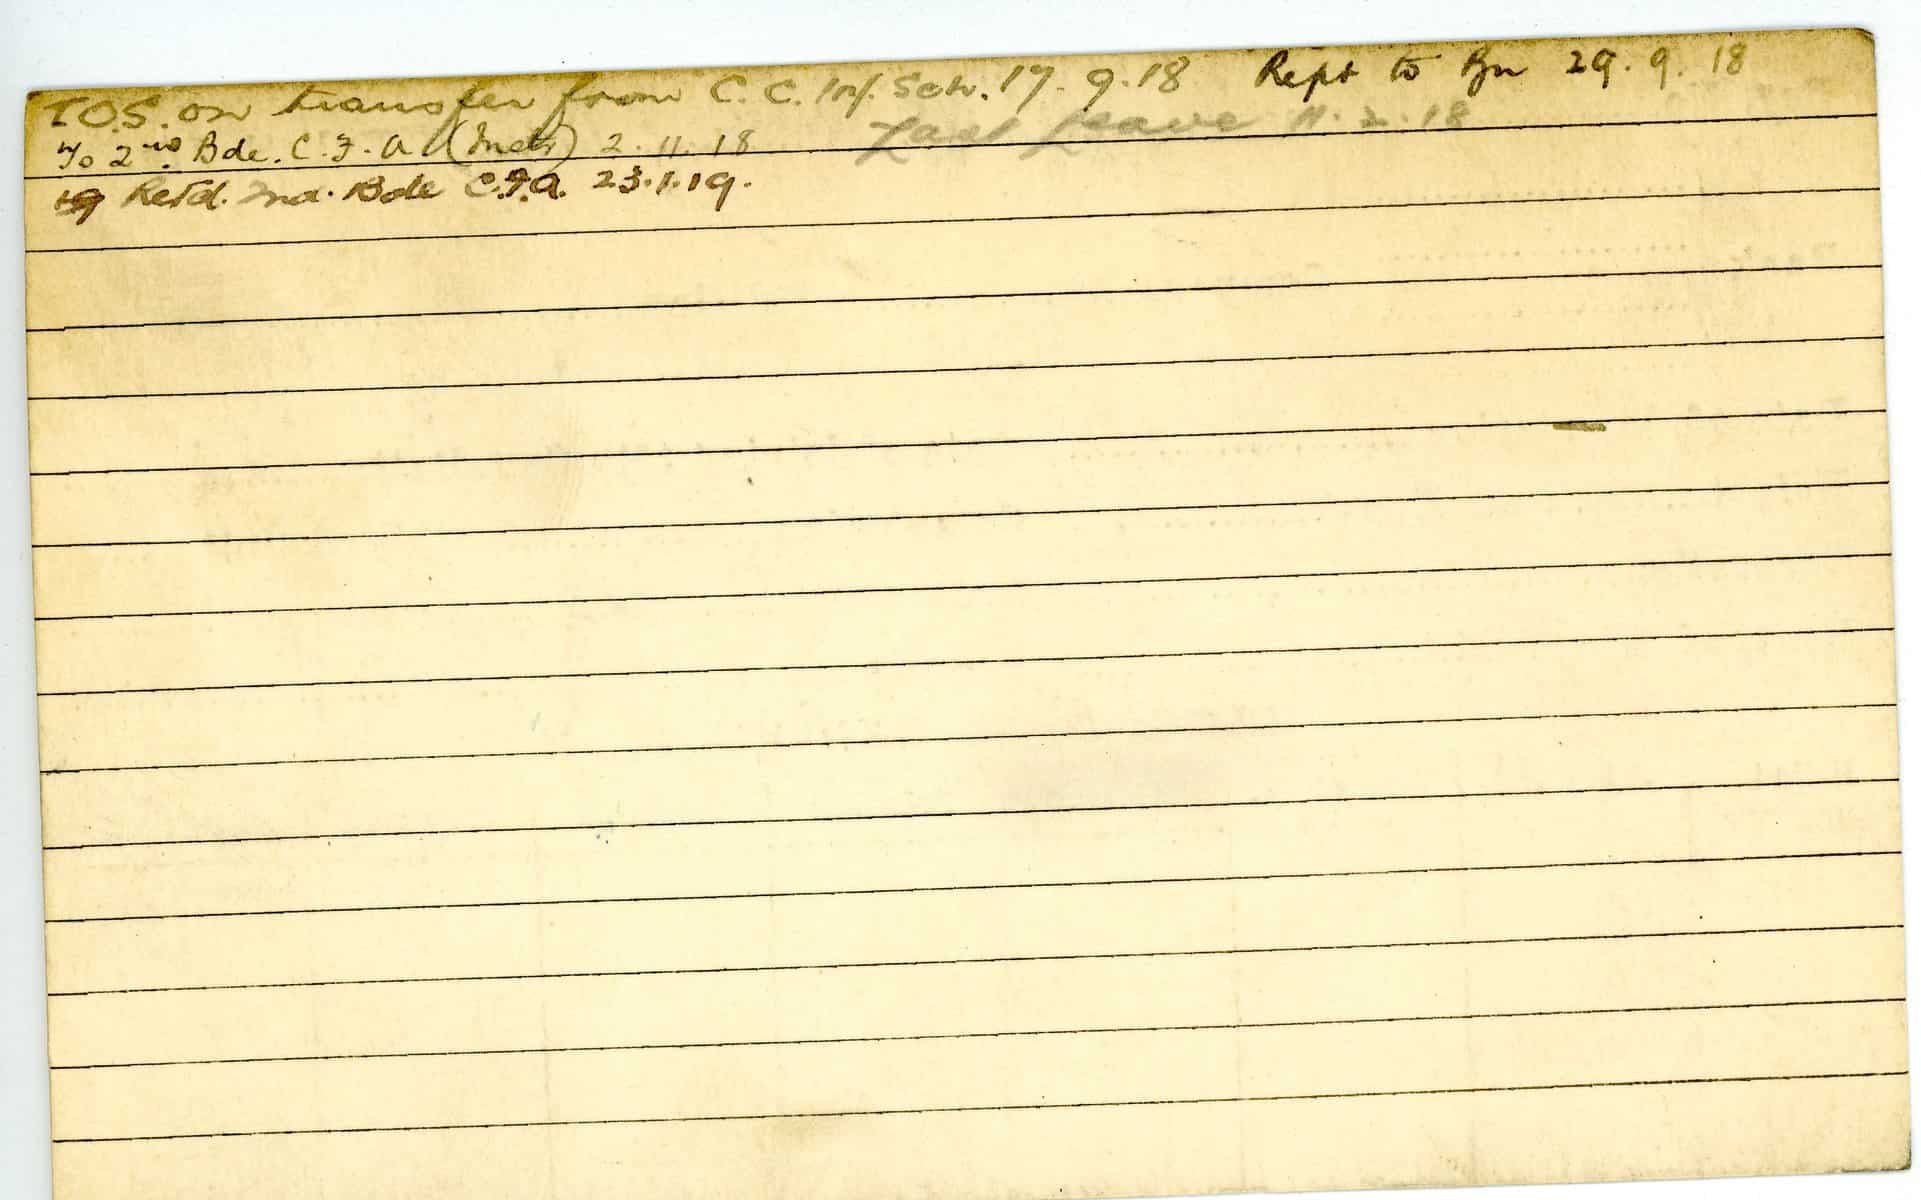 T.O.S. on transfer from C. C. Inf. Sch. 17. 9. 18 Rept to Bn 29. 9. 18
Last Leave 11. 2. 18
To 2nd Bde. C. F. A (Instr) 2. 11. 18
Retd. 2nd. Bde C.F.A. 23.1.19.